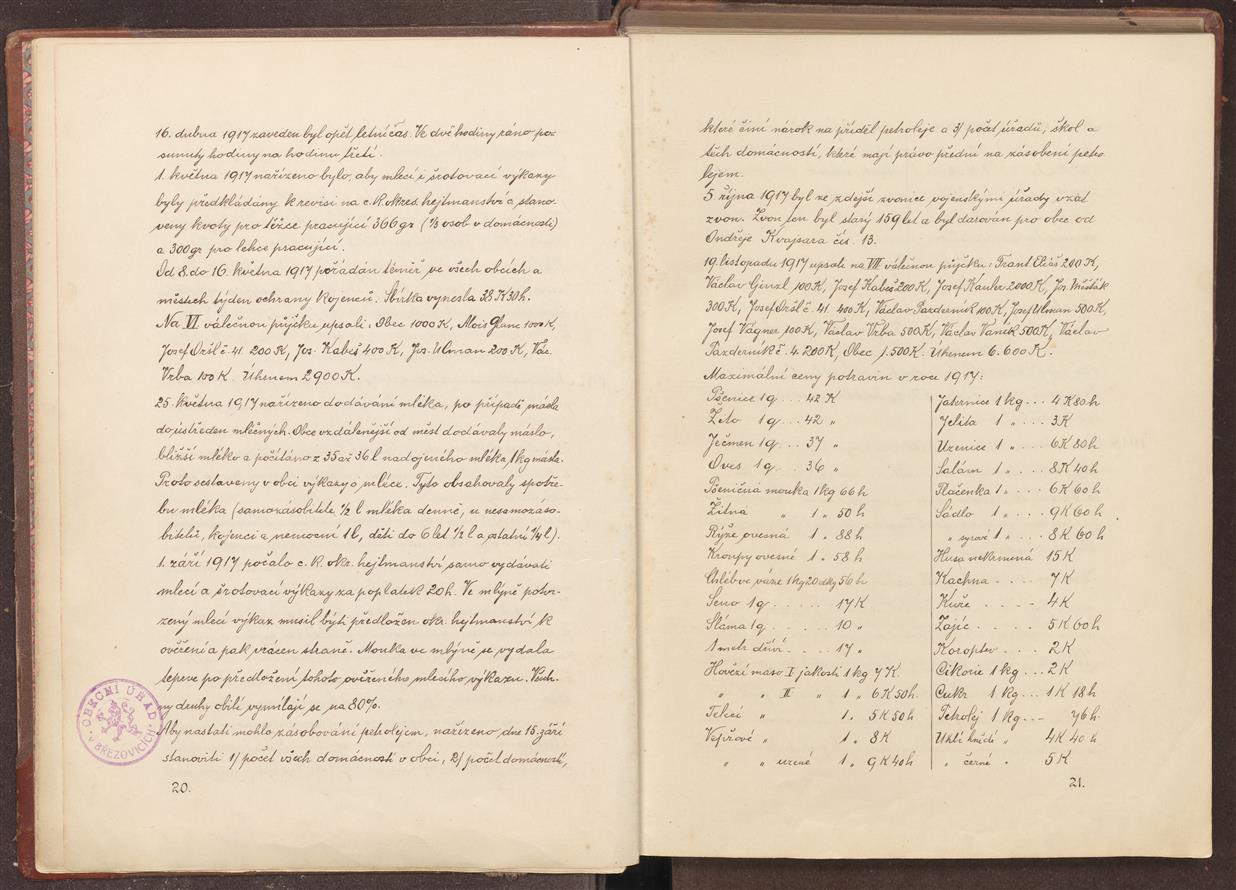 16. dubna 1917 zaveden byl opět letní čas. Ve dvě hodiny ráno po-
sunuty hodiny na hodinu třetí.
1. května 1917 nařízeno bylo, aby mlecí i šrotovací výkazy
byly předkládány k revisi na c. k. okres. hejtmanství a, stano-
veny kvoty pro těžce pracující 366 gr (⅓ osob v domácnosti)
a 300 gr pro lehce pracující.
Od 8. do 16. května 1917 pořádán téměř ve všech obcích a
městech týden ochrany kojenců. Sbírka vynesla 38 K 30 h.
Na VI válečnou půjčku upsali. Obec 1000 K, Alois Glanc 1000 K,
Josef Oršl č. 41. 200 K, Jos. Kabeš 400 K, Jos. Ulman 200 K, Vác.
Vrba 100 K. Úhrnem 2900 K.
25. května 1917 nařízeno dodávání mléka, po případě másla
do ústředen mléčných. Obce vzdálenější od měst dodávaly máslo,
bližší mléko a počítáno z 35 až 36 l nadojeného mléka, 1 kg másla.
Proto sestaveny v obci výkazy o mléce. Tyto obsahovaly spotře-
bu mléka (samozásobitelé ½ l mléka denně, u nesamozáso-
bitelů, kojenci a nemocní 1 l, děti do 6 let ½ l a ostatní ¼ l).
1. září 1917 počalo c. k. okr. hejtmanství, samo vydávati
mlecí a šrotovací výkazy za poplatek 20 h. Ve mlýně potvr-
zený mlecí výkaz musil býti předložen okr. hejtmanství k
ověření a pak vrácen straně. Mouka ve mlýně se vydala
teprve po předložení tohoto ověřeného mlecího výkazu. Všech-
ny druhy obilí vymílají se na 80%.
Aby nastati mohlo zásobování petrolejem, nařízeno dne 15. září
stanoviti 1/ počet všech domácností v obci, 2/ počet domácností,
OBECNÍ ÚŘAD
V BŘEZOVICÍCH
20.
které činí nárok na příděl petroleje a 3/ počet úřadů, škol a
těch domácností, které mají právo přední na zásobení petro-
lejem.
5. října 1917 byl ze zdejší zvonice vojenskými úřady vzat
zvon. Zvon ten byl starý 159 let a byl darován pro obec od
Ondřeje Kvajsara čís. 13.
19. listopadu 1917 upsale na VII válečnou půjčku: Frant. Eliáš 200 K,
Václav Ginzl 100 K, Josef Kabeš 200 K, Josef Kauler 2000 K, Jos. Měšťák
300 K, Josef Oršl č. 41. 400 K, Václav Pazderník 100 K, Josef Ulman 500 K,
Josef Vágner 100 K, Václav Vrba 500 K, Václav Vaněk 500 K, Václav
Pazderník č. 4. 200 K, Obec 1.500 K. Úhrnem 6.600 K.
Maximální ceny potravin v roce 1917:
Pšenice 1 q ... 42 K
Žito 1 q ... 42 „
Ječmen 1 q ... 37 „
Oves 1 q ... 36 „
Pšeničná mouka 1 kg 66 h
Žitná „ 1 „ 50 h
Rýže ovesná 1 „ 88 h
Kroupy ovesné 1 „ 58 h
Chléb ve váze 1 kg 20 dkg 56 h
Seno 1 q ..... 17 K
Sláma 1 q ..... 10 „
1 metr dříví .... 17 „
Hovězí maso I jakosti 1 kg 7 K.
„ „ II „ 1 „ 6 K 50 h.
Telecí „ 1 „ 5 K 50 h
Vepřové „ 1 „ 8 K
„ „ uzené 1 „ 9 K 40 h
Jaternice 1 kg ... 4 K 80 h
Jelita 1 „ ... 3 K
Uzenice 1 „ ... 6 K 80 h
Salám 1 „ ... 8 K 40 h
Tlačenka 1 „ ... 6 K 60 h
Sádlo 1 „ ... 9 K 60 h
„ syrové 1 „ ... 8 K 60 h
Husa nekrmená 15 K
Kachna .... 7 K
Kuře .... 4 K
Zajíc .... 5 K 60 h
Koroptev ... 2 K
Cikorie 1 kg ... 2 K
Cukr 1 kg ... 1 K 18 h
Petrolej 1 kg ... 76 h.
Uhlí hnědé „ 4 K 40 h
„ černé „ 5 K
21.